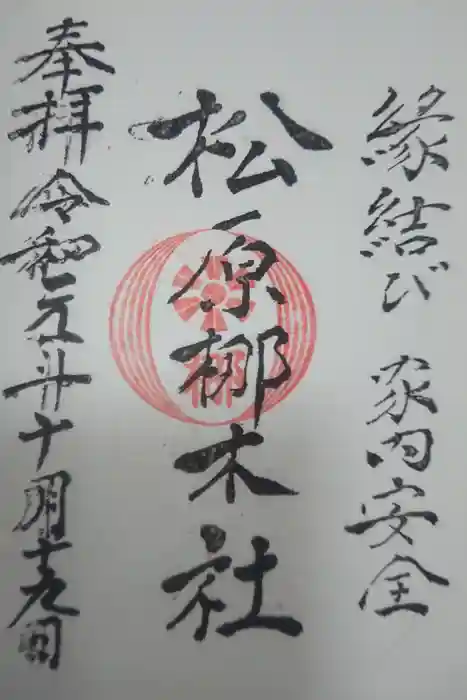 縁結び 家内安全
松原梛木社
奉拝 令和元年十月十九日